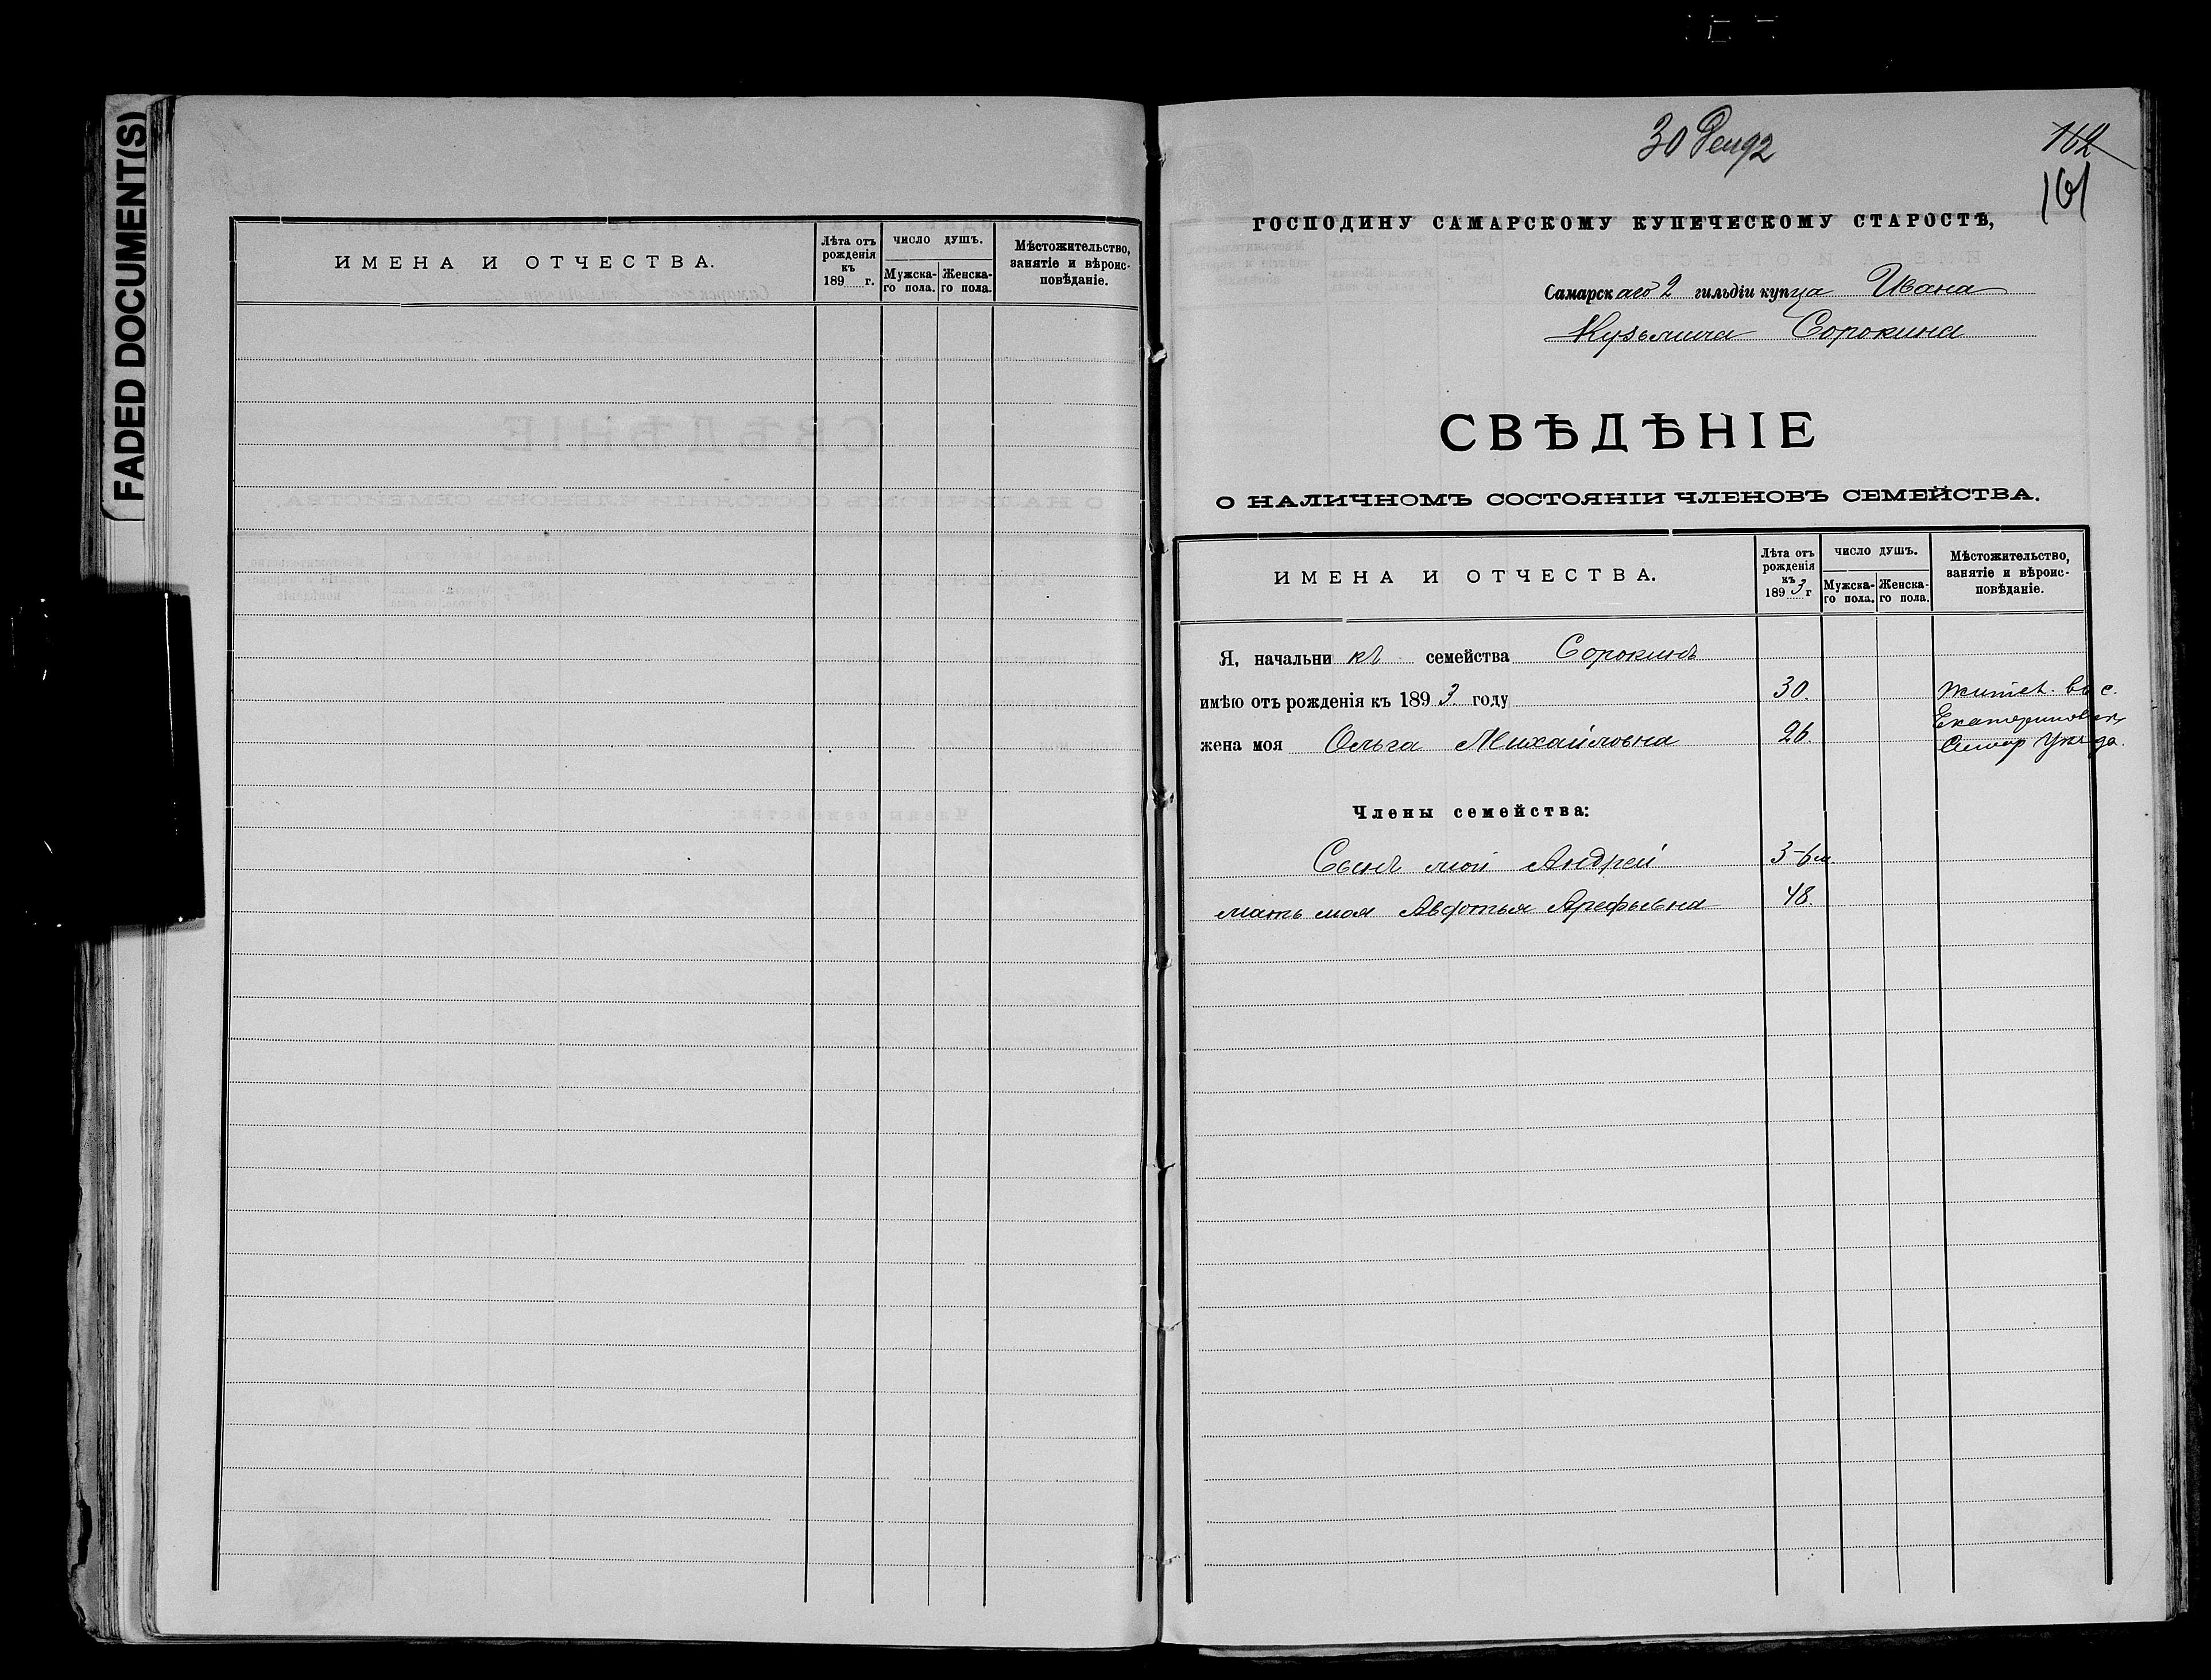 FADED DOCUMENT(S)
ИМЕНА И ОТЧЕСТВА.
Лѣта отъ рожденія къ 189 г.
ЧИСЛО ДУШЪ.
Мужска-го пола.
Женска-го пола.
Мѣстожительство, занятіе и вѣроис-повѣданіе.
30 Дек 92
162
161
ГОСПОДИНУ САМАРСКОМУ КУПЕЧЕСКОМУ СТАРОСТѢ,
Самарскаго 2 гильдіи купца Ивана
Кузьмича Сорокина
СВѢДѢНІЕ
О НАЛИЧНОМЪ СОСТОЯНІИ ЧЛЕНОВЪ СЕМЕЙСТВА.
ИМЕНА И ОТЧЕСТВА.
Лѣта отъ рожденія къ 1893 г
ЧИСЛО ДУШЪ.
Мужска-го пола.
Женска-го пола.
Мѣстожительство, занятіе и вѣроис-повѣданіе.
Я, начальникъ семейства Сорокинъ
имѣю отъ рожденія къ 1893 году 30. жител. въ с.
Екатериновк
жена моя Ольга Михайловна 26. Самар уѣзда.
Члены семейства:
Сынъ мой Андрей 3-6 м.
мать моя Авдотья Арефьевна 48.